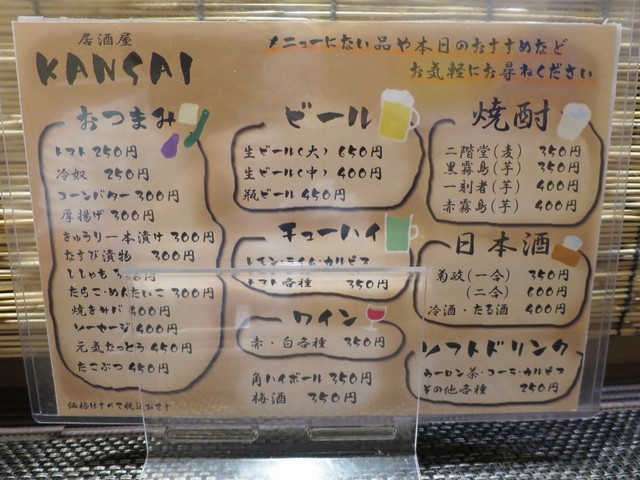 居酒屋
KANSAI
メニューにない品や本日のおすすめなど
お気軽にお尋ねください
おつまみ
トマト 250円
冷奴 250円
コーンバター 300円
厚揚げ 300円
きゅうり一本漬け 300円
なすび漬物 300円
ししゃも 300円
たらこ・めんたいこ 300円
焼きみが 400円
ソーセージ 400円
元気なっとう 450円
たこぶつ 450円
価格はすべて税込みです
ビール
生ビール(大) 650円
生ビール(中) 400円
瓶ビール 450円
チューハイ
レモン・ライム・カルピス
トマト各種 350円
ワイン
赤・白各種 350円
角ハイボール 350円
梅酒 350円
焼酎
二階堂(麦) 350円
黒霧島(芋) 350円
一刻者(芋) 400円
赤霧島(芋) 400円
日本酒
菊政(一合) 350円
(二合) 600円
冷酒・たる酒 400円
ソフトドリンク
ウーロン茶・コーラ・カルピス
その他各種 250円